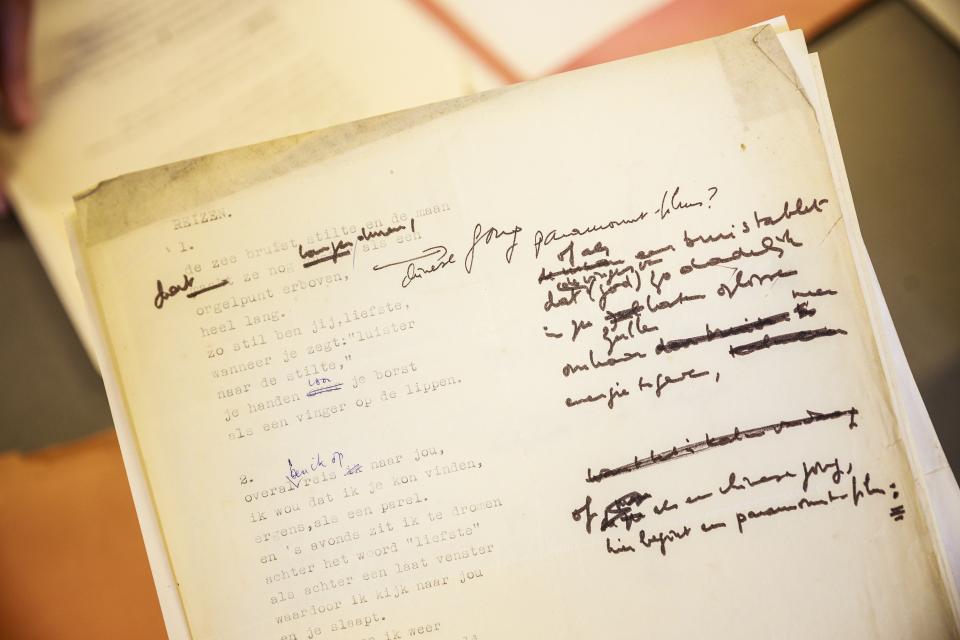 REIZEN.
1.
de zee bruist, stilte en de maan
hout ze nog tussen duim, als een
orgelpunt erboven,
heel lang.
zo stil ben jij, liefste,
wanneer je zegt:"luister
naar de stilte,"
je handen voor je borst
als een vinger op de lippen.
2.
ben ik op
overal reis ik naar jou,
ik wou dat ik je kon vinden,
ergens, als een parel.
en 's avonds zit ik te dromen
achter het woord "liefste"
als achter een laat venster
waardoor ik kijk naar jou
en je slaapt.
ik weer
chinese gong paramount-film?
of als
een bruistablet
dat (god) zo dadelijk
in je laten oplossen
zullen
om haar meer
energie te geven,
of als een chinese gong,
hier begint een paramount-film: